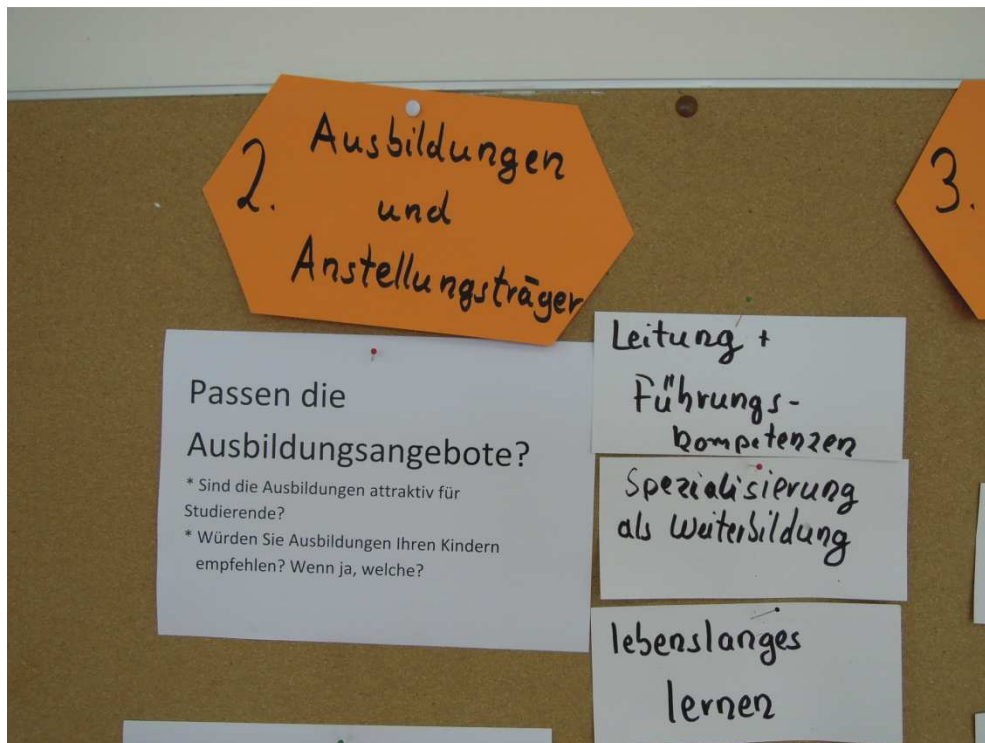 2. Ausbildungen
und
Anstellungsträger
3.
Passen die
Ausbildungsangebote?
* Sind die Ausbildungen attraktiv für
Studierende?
* Würden Sie Ausbildungen Ihren Kindern
empfehlen? Wenn ja, welche?
Leitung +
Führungs-
kompetenzen
Spezialisierung
als Weiterbildung
lebenslanges
lernen